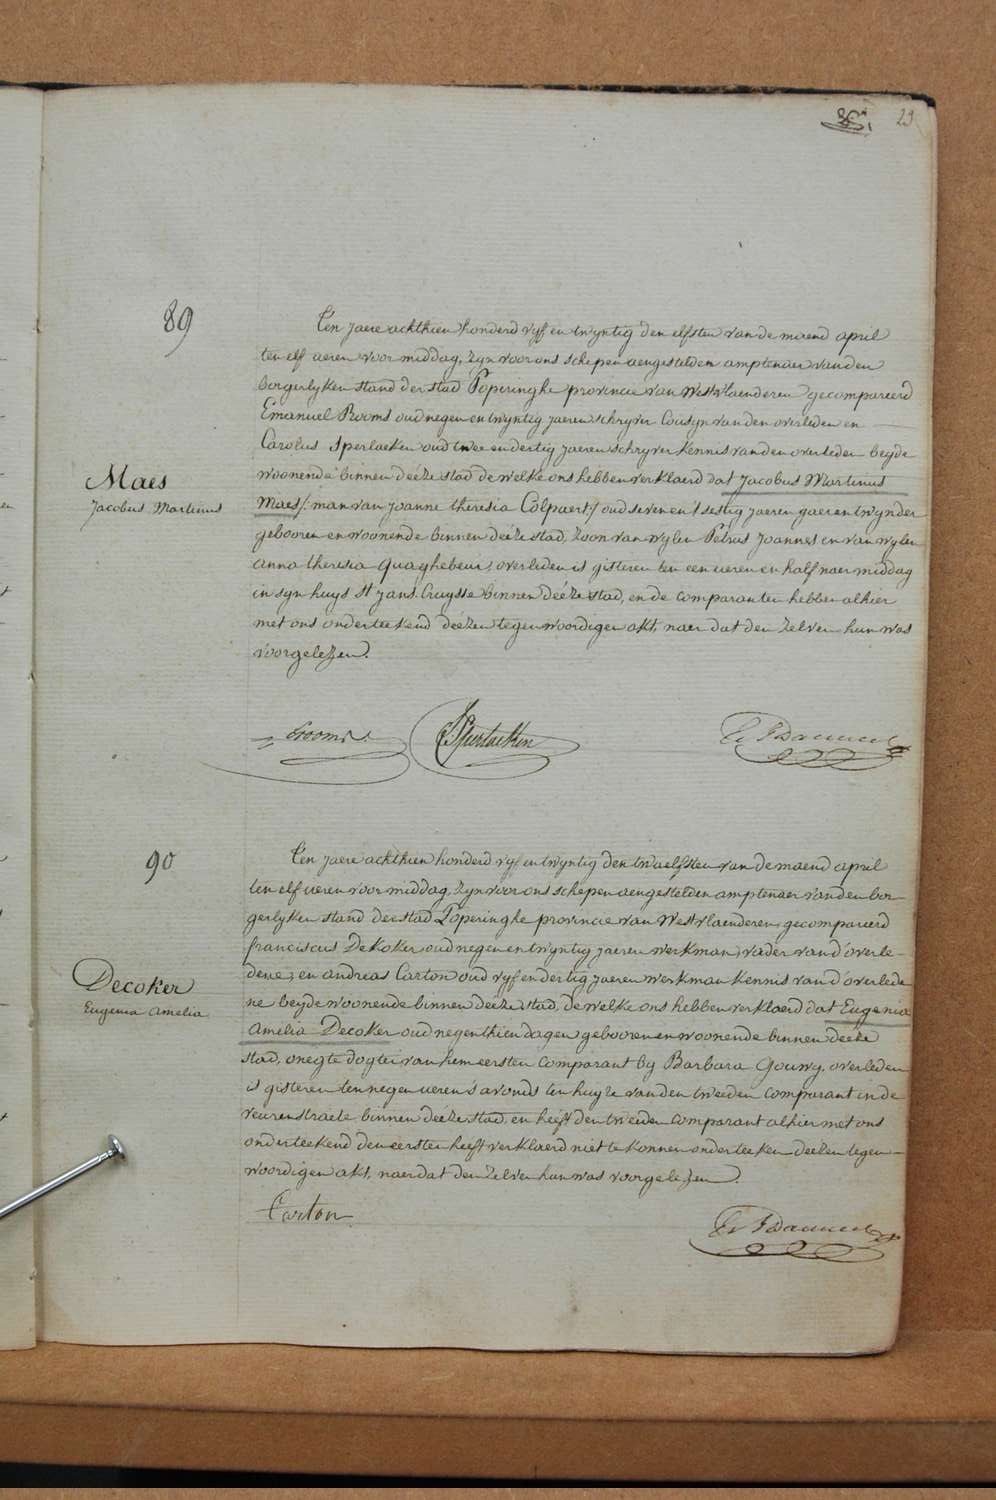 23
89
Maes
Jacobus Martinus
Ten jaere achthien honderd vyf en twyntig den elfsten van de maend april
ten elf ueren voor middag, zyn voor ons schepen aengestelden amptenaer van den
borgerlyken stand der stad Poperinghe provincie van Westvlaenderen gecompareerd
Emanuel Rooms oud negen en twyntig jaeren schryver Cousyn van den overleden en
Carolus Sperlaeken oud twee en dertig jaeren schryver kennis van den overleden beyde
woonende binnen déeze stad de welke ons hebben verklaerd dat Jacobus Martinus
Maes /: man van joanne theresia Colpaert :/ oud seven en 'sestig jaeren gaerentwynder
gebooren en woonende binnen déeze stad, Zoon van wylen Petrus Joannes en van wylen
anna theresia Quaghebeur, overleden is gisteren ten een ueren en half naer middag
in syn huys St Jans Cruysse binnen déeze stad, en de comparanten hebben alhier
met ons onderteekend déezen tegenwoordigen akt, naer dat den zelven hun was
voorgelezen.
Erooms
Sperlaeken
90
Decoker
Eugenia Amelia
Ten jaere achthien honderd vyf en twyntig den twaelfsten van de maend april
ten elf ueren voor middag, zyn voor ons schepen aengestelden amptenaer van den bor
gerlyken stand der stad Poperinghe provincie van Westvlaenderen, gecompareerd
franciscus DeKoker oud negen en twyntig jaeren werkman, vader van d'overle-
dene, en andreas Carton oud vyf en dertig jaeren werkman kennis van d'overlede
ne beyde woonende binnen déeze stad, de welke ons hebben verklaerd dat Eugenia
Amelia Decoker oud negenthien dagen, gebooren en woonende binnen deeze
stad, onegte dogter van hem eersten comparant by Barbara Gouwy, overleden
is gisteren ten negen ueren 's avonds ten huyze van den tweeden comparant in de
veurenstraete binnen deeze stad, en heeft den tweeden comparant alhier met ons
onderteekend den eersten heeft verklaerd niet te konnen onderteeken deezen tegen-
woordigen akt, naer dat den zelven hun was voorgelezen.
Carton